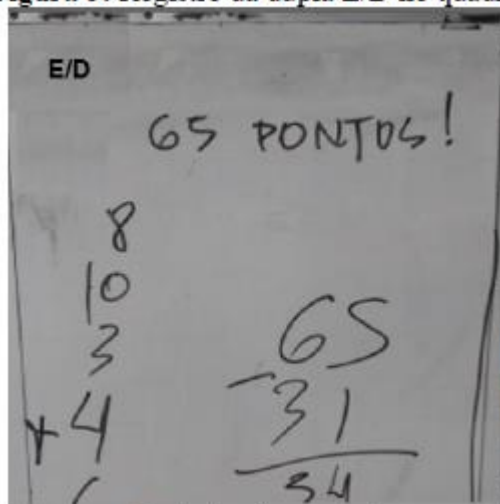 E/D
65 PONTOS!
8
10
3
+4
65
-31
34